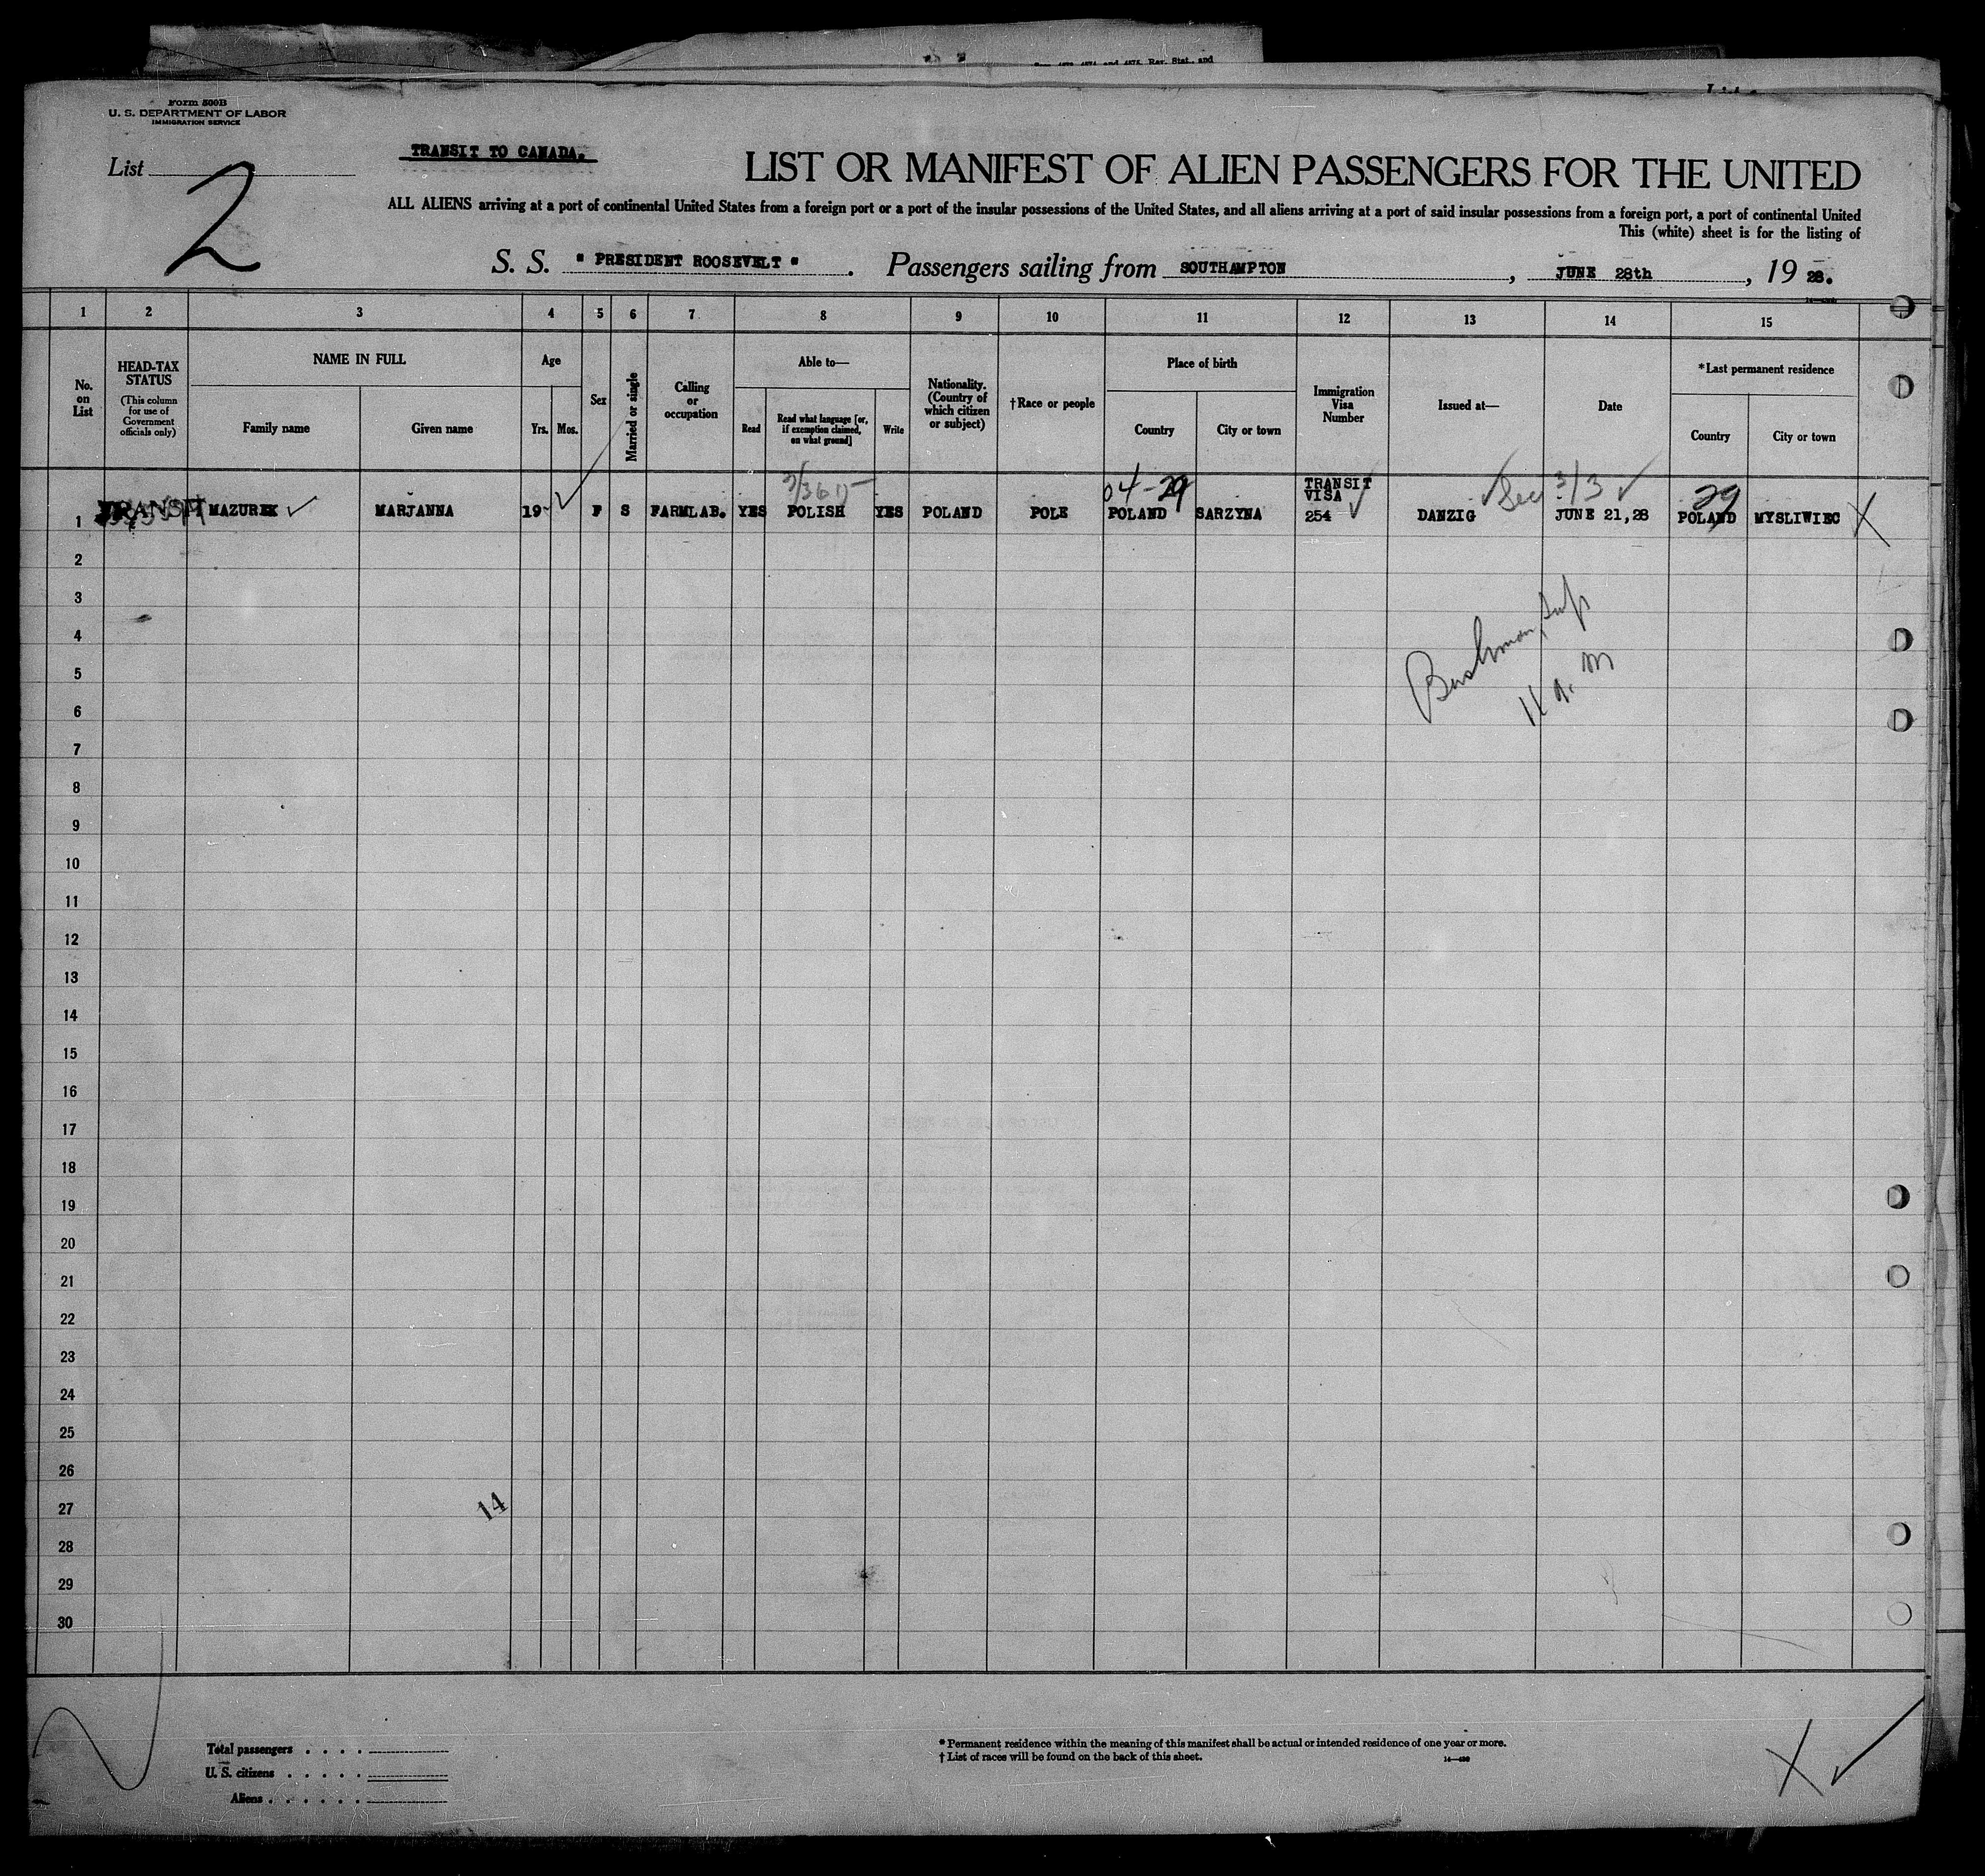 Sec. 4873, 4874 and 4875, Rev. Stat., and
Form 500B
U. S. DEPARTMENT OF LABOR
IMMIGRATION SERVICE
List 2
TRANSIT TO CANADA.
LIST OR MANIFEST OF ALIEN PASSENGERS FOR THE UNITED
ALL ALIENS arriving at a port of continental United States from a foreign port or a port of the insular possessions of the United States, and all aliens arriving at a port of said insular possessions from a foreign port, a port of continental United
This (white) sheet is for the listing of
S. S. " PRESIDENT ROOSEVELT " . Passengers sailing from SOUTHAMPTON , JUNE 28th , 19 28.
1 2 3 4 5 6 7 8 9 10 11 12 13 14 15
No. on List
HEAD-TAX STATUS
(This column for use of Government officials only)
NAME IN FULL
Family name Given name
Age
Yrs. Mos.
Sex
Married or single
Calling or occupation
Able to—
Read
Read what language [or, if exemption claimed, on what ground]
Write
Nationality. (Country of which citizen or subject)
†Race or people
Place of birth
Country City or town
Immigration Visa Number
Issued at—
Date
*Last permanent residence
Country City or town
04-29 TRANSIT VISA Sec 3/3 29
1 TRANSIT MAZUREK MARJANNA 19 F S FARMLAB. YES POLISH YES POLAND POLE POLAND SARZYNA 254 DANZIG JUNE 21,28 POLAND MYSLIWIEC X
2
3
4
5
6
7
8
9
10
11
12
13
14
15
16
17
18
19
20
21
22
23
24
25
26
27
28
29
30
11 a.m
14
Total passengers . . . .
U. S. citizens . . . . .
Aliens . . . . . .
* Permanent residence within the meaning of this manifest shall be actual or intended residence of one year or more.
† List of races will be found on the back of this sheet.
X